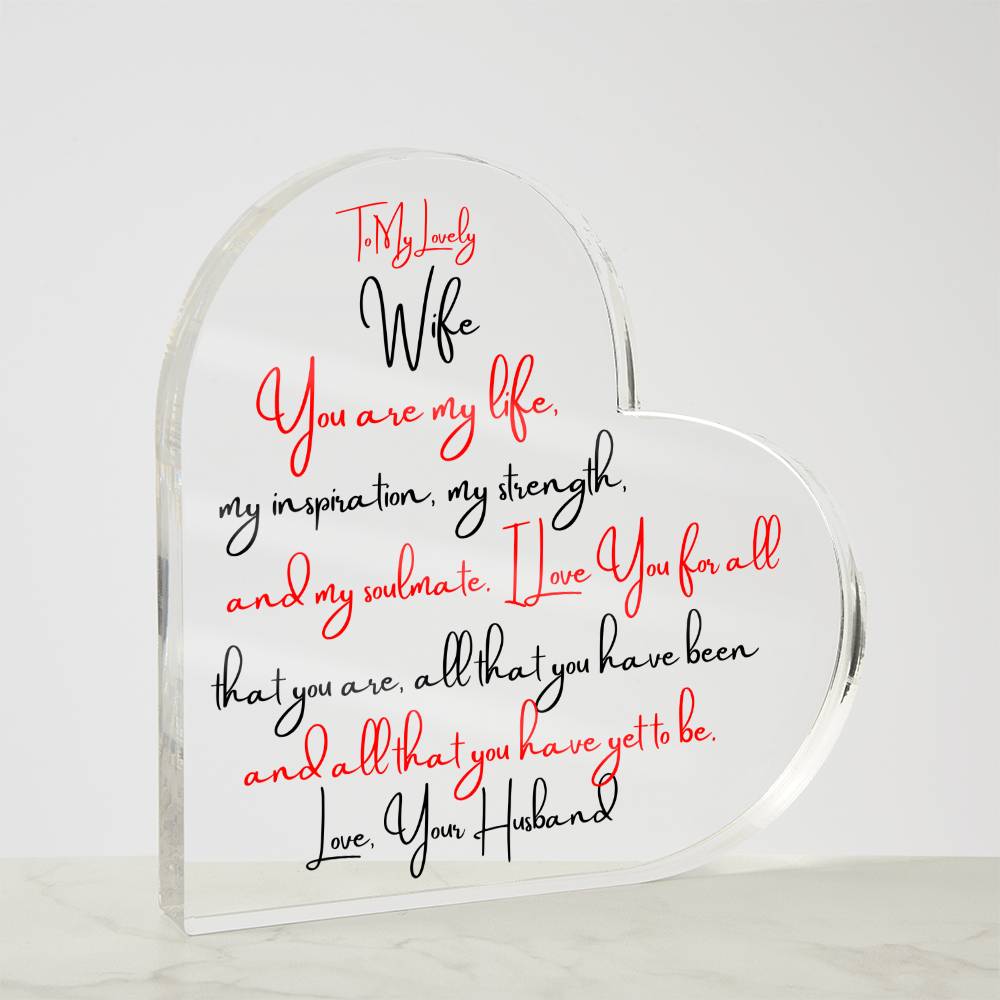 To My Lovely
Wife
You are my life,
my inspiration, my strength,
and my soulmate. I Love You for all
that you are, all that you have been
and all that you have yet to be.
Love, Your Husband